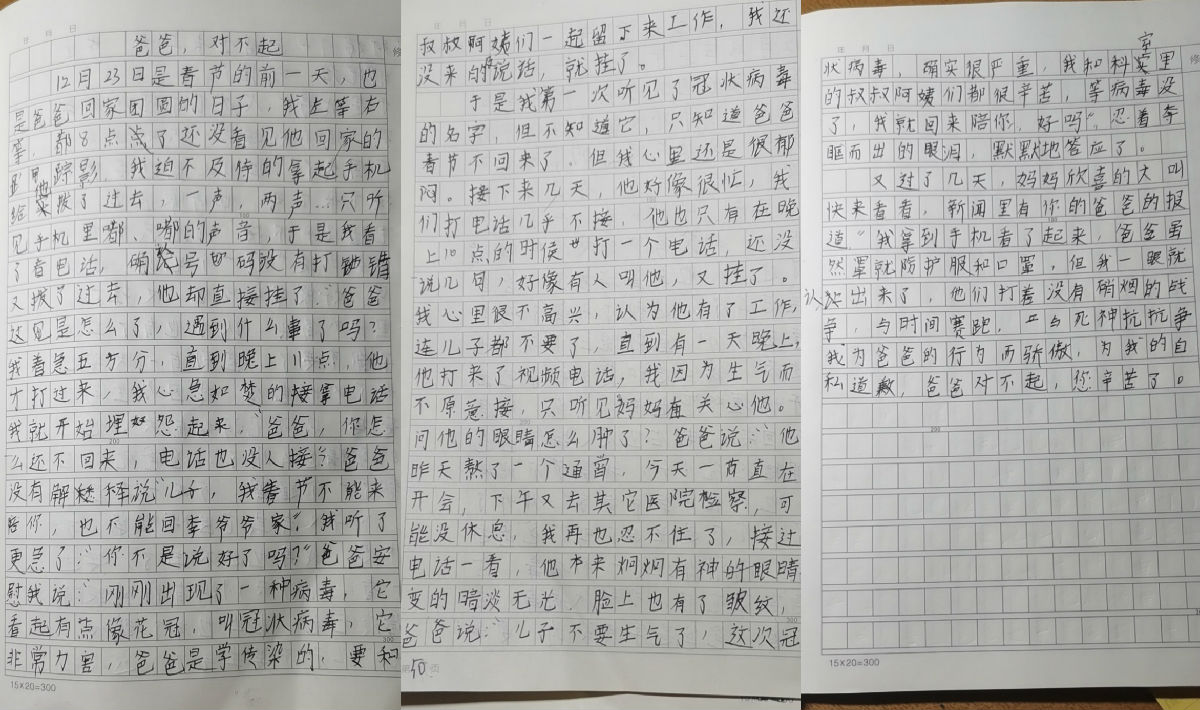 年 月 日
爸爸，对不起
12月23日是春节的前一天，也
是爸爸回家团圆的日子，我左等右
等，都8点点了还没看见他回家的
踪影，我迫不及待的拿起手机
给他拨了过去，一声，两声…只听
见手机里嘟、嘟的声音，于是我看
了看电话，确定号码没有打错
又拨了过去，他却直接挂了：“爸爸
这是怎么了，遇到什么事了吗？
我着急五万分，直到晚上11点，他
才打过来，我心急如焚的接拿电话
我就开始埋怨起来，“爸爸，你怎
么还不回来，电话也没人接？爸爸
没有解释说“儿子，我春节不能来
陪你，也不能回李爷爷家”。我听了
更急了：“你不是说好了吗？”爸爸安
慰我说：“刚刚出现了一种病毒，它
看起有点像花冠，叫冠状病毒，它
非常力害，爸爸是学传染的，要和
15×20=300
叔叔阿姨们一起留下来工作，我还
没来的说话，就挂了。
于是我第一次听见了冠状病毒
的名字，但不知道它，只知道爸爸
春节不回来了，但我心里还是很郁
闷。接下来几天，他好像很忙，我
们打电话几乎不接，他也只有在晚
上10点的时侯打一个电话，还没
说几句，好像有人叫他，又挂了。
我心里很不高兴，认为他有了工作，
连儿子都不要了，直到有一天晚上，
他打来了视频电话，我因为生气而
不原意接，只听见妈妈在关心他。
问他的眼睛怎么肿了？爸爸说：“他
昨天熬了一个通宵，今天一直在
开会，下午又去其它医院检察，可
能没休息，我再也忍不住了，接过
电话一看，他本来炯炯有神的眼睛
变的暗淡无光，脸上也有了皱纹，
爸爸说：“儿子不要生气了，这次冠
第50页
年 月 日
状病毒，确实很严重，我和科室里
的叔叔阿姨们都很辛苦，等病毒没
了，我就回来陪你，好吗”，忍着夺
眶而出的眼泪，默默地答应了。
又过了几天，妈妈欣喜的大叫
快来看看，新闻里有你的爸爸的报
道”我拿到手机看了起来，爸爸虽
然罩就防护服和口罩，但我一眼就
认出来了，他们打着没有硝烟的战
争，与时间赛跑，与死神抗抗争
我为爸爸的行为而骄傲，为我的自
私道歉，爸爸对不起，您辛苦了。
15×20=300